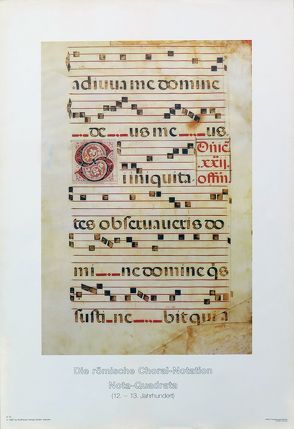 adiuua me domine
de us me us.
Dñic̃
xxij.
offm̃
Si iniquita
tes obseruaueris do
mi ne domine q̃s
susti ne bit quia
Die römische Choral-Notation
Nota-Quadrata
(12. – 13. Jahrhundert)